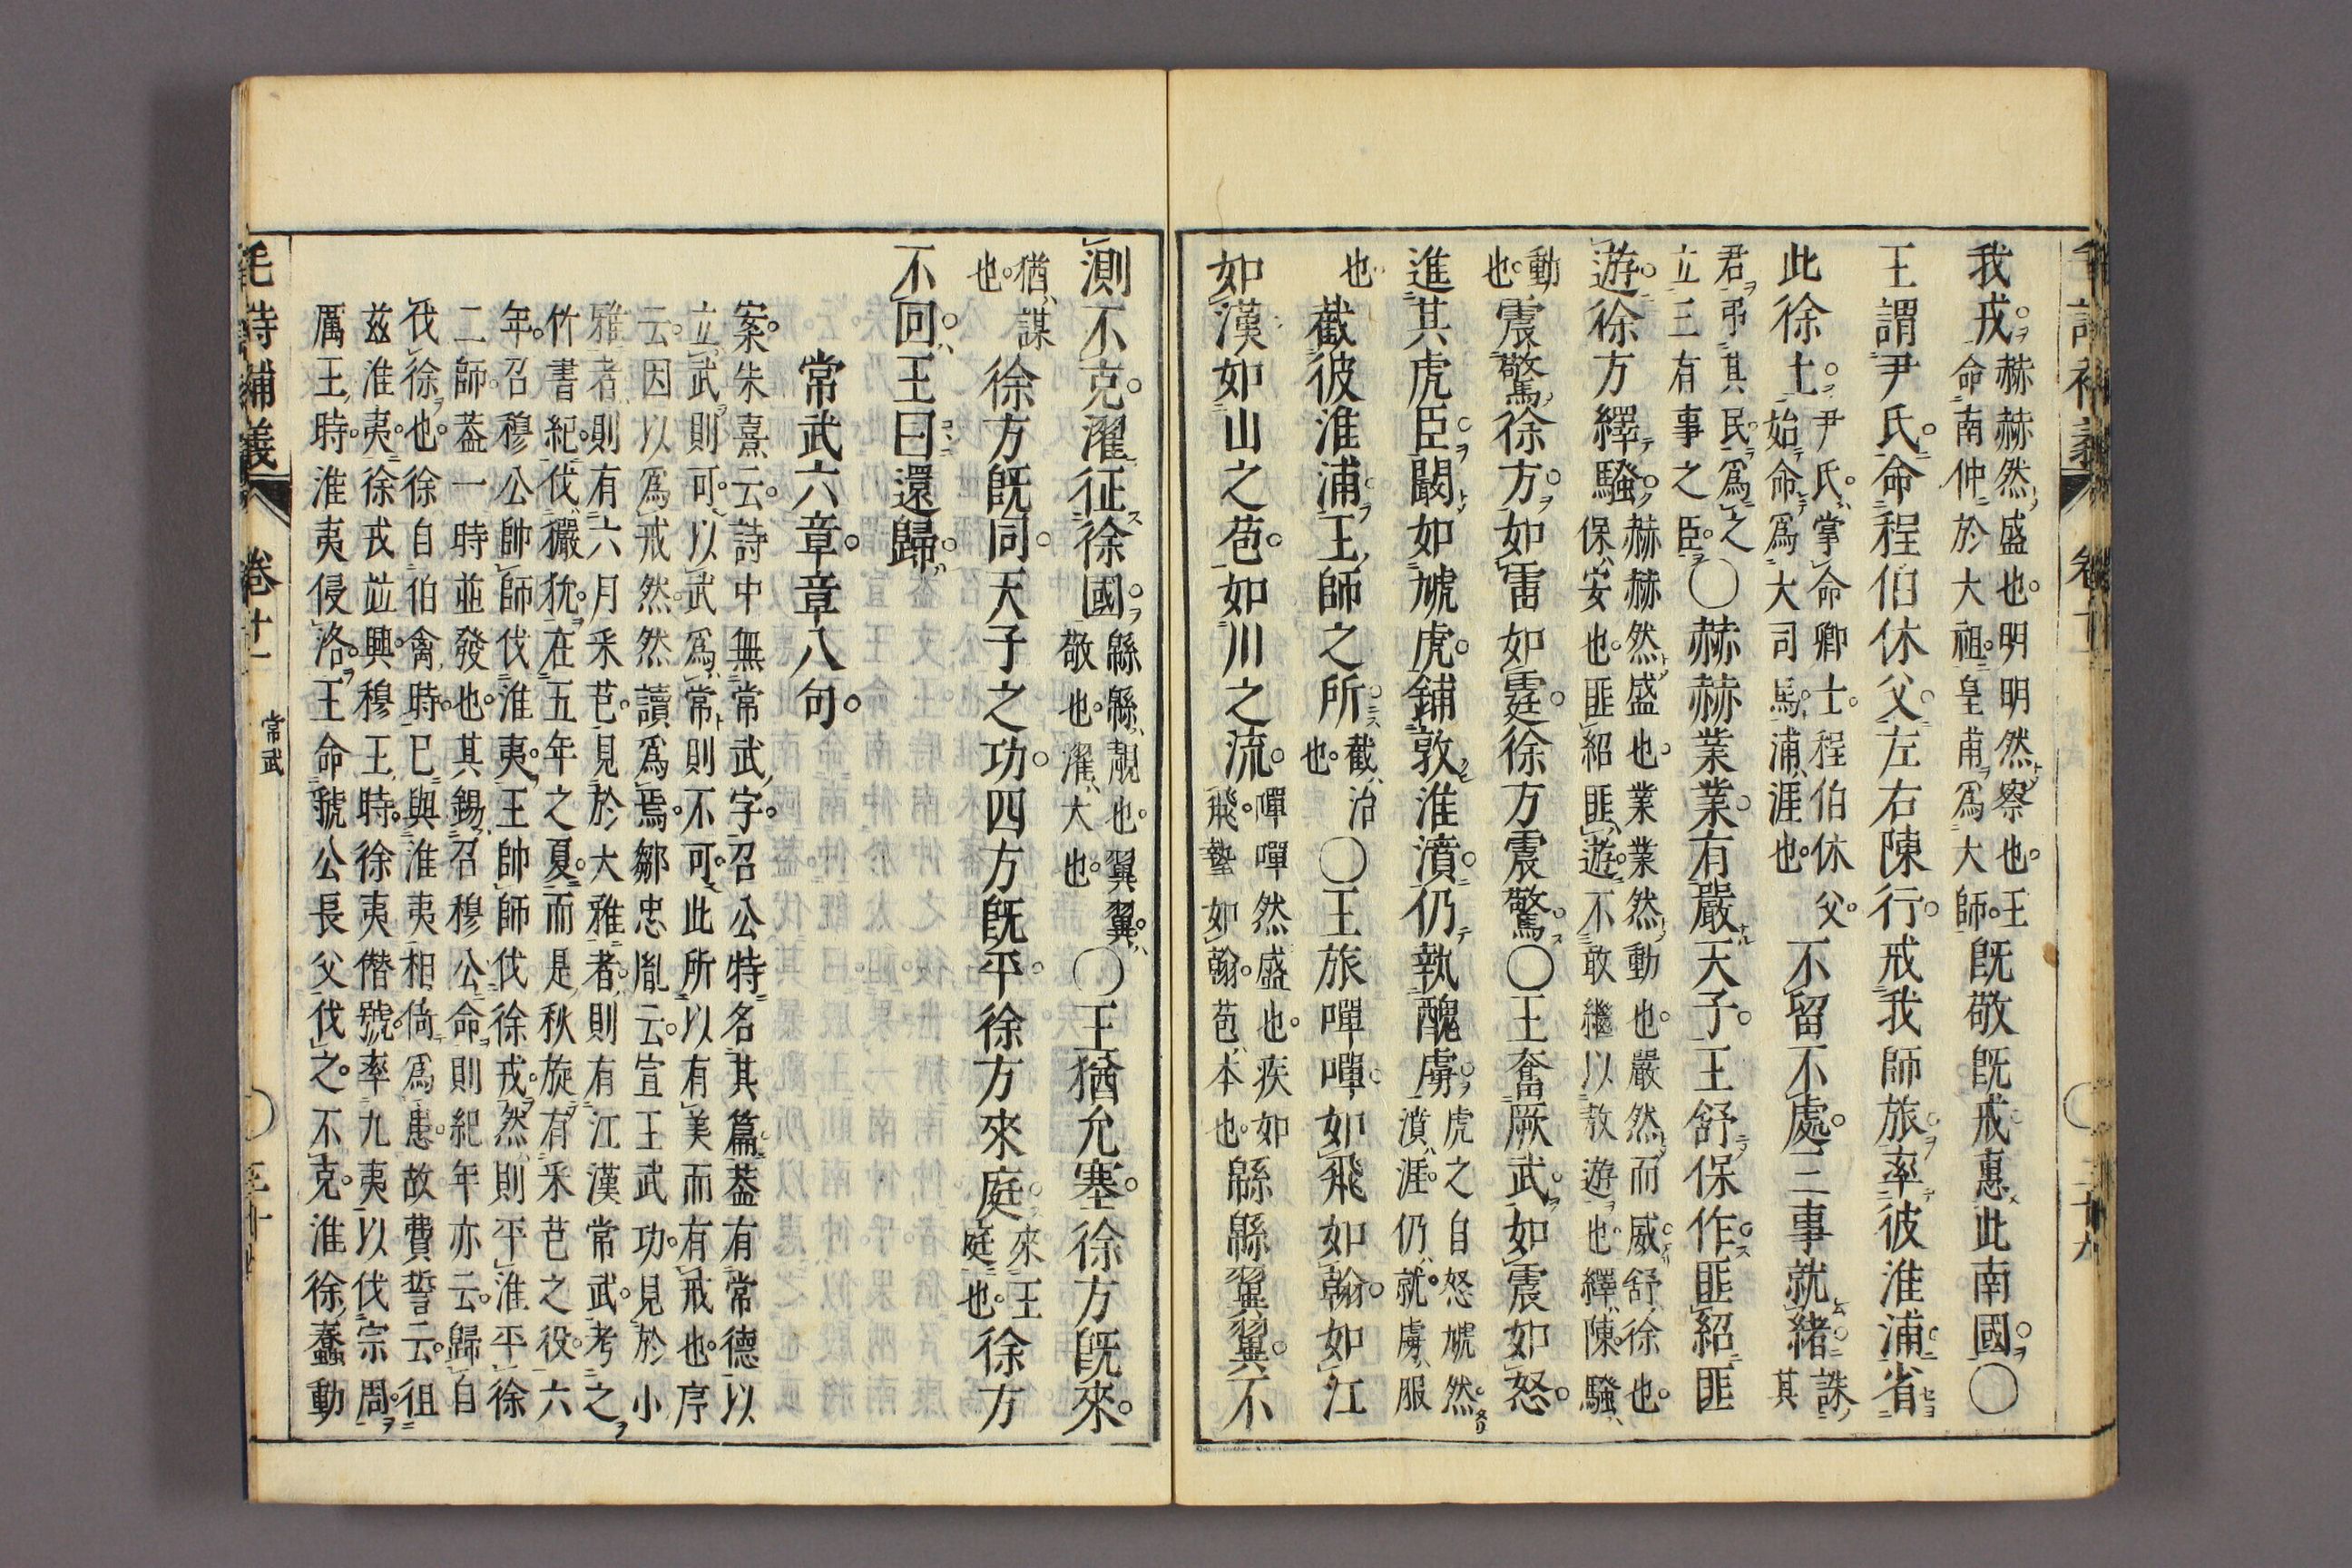 我戎。赫赫然盛也。明明然察也。王命南仲於大祖。皇甫爲大師。既敬既戒惠此南國。〇
王謂尹氏。命程伯休父。左右陳行。戒我師旅。率彼淮浦。省
此徐土。尹氏。掌命卿士。程伯休父。始命爲大司馬。浦涯也。不留不處。三事就緒。誅其
君。弔其民。爲之立三有事之臣。〇赫赫業業。有嚴天子。王舒保作。匪紹匪
遊。徐方繹騷。赫赫然盛也。業業然動也。嚴然而威。舒徐也。保安也。匪紹匪遊。不敢繼以敖遊也。繹陳。騷
動也。震驚徐方。如雷如霆。徐方震驚。〇王奮厥武。如震如怒。
進其虎臣。闞如虓虎。鋪敦淮濆。仍執醜虜。虎之自怒虓然。濆涯。仍就。虜服
也。截彼淮浦。王師之所。截治也。〇王旅嘽嘽。如飛如翰。如江
如漢。如山之苞。如川之流。嘽嘽然盛也。疾如飛。摯如翰。苞本也。緜緜翼翼。不
測不克。濯征徐國。緜緜靚也。翼翼。敬也。濯大也。〇王猶允塞。徐方既來。
猶謀也。徐方既同。天子之功。四方既平。徐方來庭。來王庭也。徐方
不回。王曰還歸。
常武六章。章八句。
案。朱熹云。詩中無常武字。召公特名其篇。蓋有常德以
立武則可。以武爲常則不可。此所以有美而有戒也。序
云。因以爲戒然。然讀爲焉。鄒忠胤云。宣王武功。見於小
雅者。則有六月采芑。見於大雅者。則有江漢常武。考之
竹書紀。伐玁狁。在五年之夏。而是秋旋有采芑之役。六
年。召穆公帥師伐淮夷。王帥師伐徐戎。然則平淮平徐
二師。蓋一時並發也。其錫召穆公命。則紀年亦云。歸自
伐徐也。徐自伯禽時。已與淮夷相倚爲患。故費誓云。徂
茲淮夷。徐戎竝興。穆王時。徐夷僭號。率九夷以伐宗周。
厲王時。淮夷侵洛。王命虢公長父伐之。不克。淮徐蠢動
毛詩補義 卷十一 常武